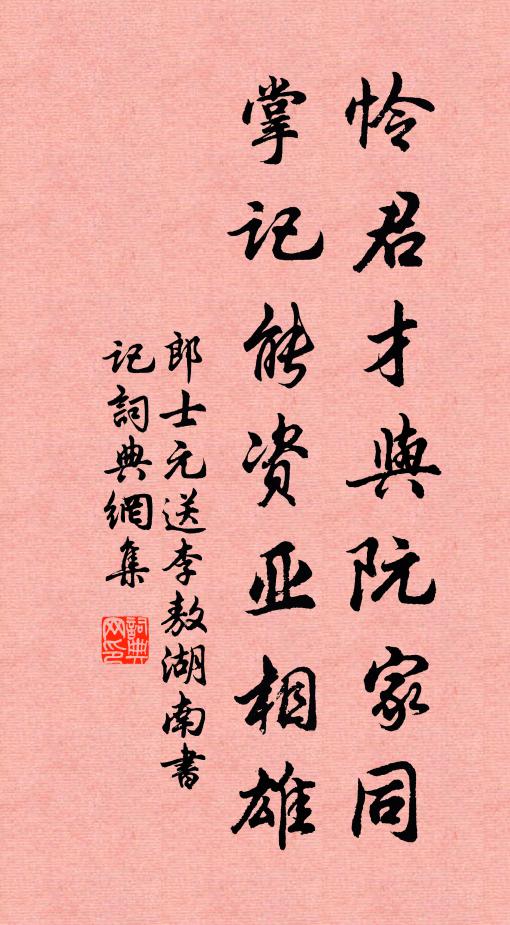 怜君才與阮家同
掌记能资亚相雄
郎士元送李敖湖南書
记詞典網集
詞典
网印